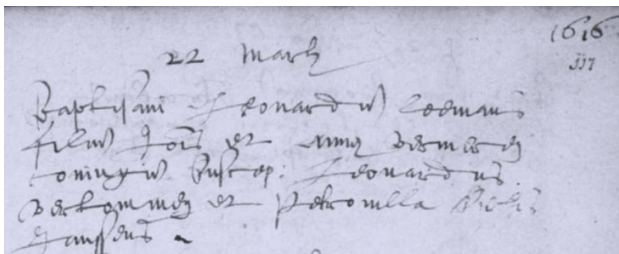 1616
22 Martij
Baptisavi Leonardum Leemans
filium Jois et Anna Vermeren
coniugum Suscep: Leonardus
Verkommen et Petronilla
Janssens